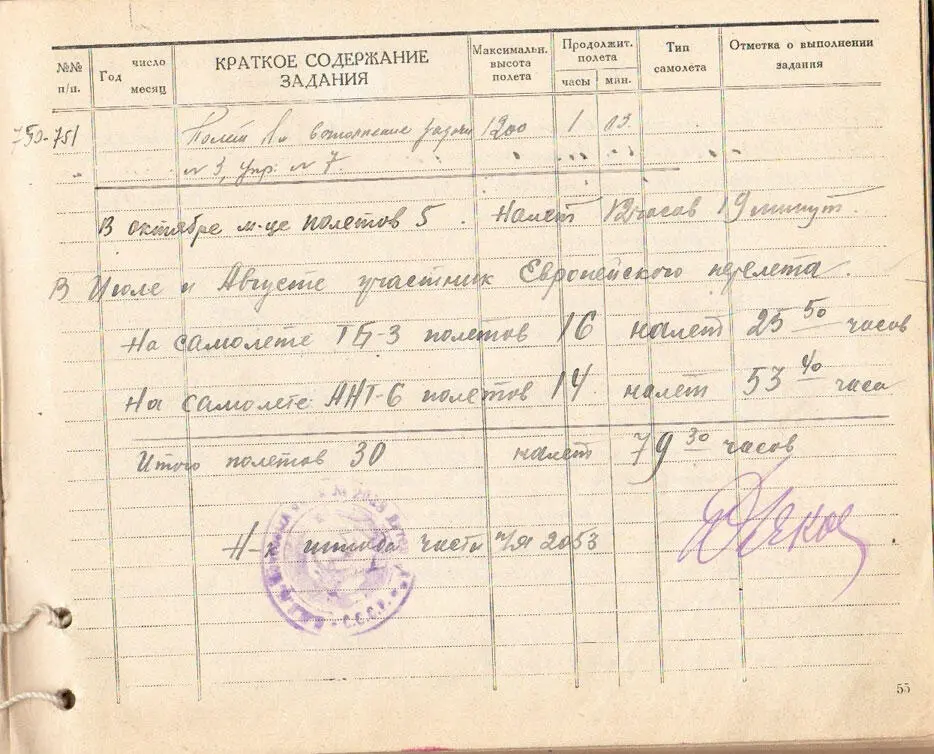 №№ п/п.
Год число месяц
КРАТКОЕ СОДЕРЖАНИЕ ЗАДАНИЯ
Максимальн. высота полета
Продолжит. полета
часы мин.
Тип самолета
Отметка о выполнении задания
750-751 Полет на выполнение задачи 1200 1 13
" № 3, упр. № 7.
В октябре м-це полетов 5. Налет 12 часов 19 минут.
В Июле и Августе участник Европейского перелета.
На самолете ТБ-3 полетов 16 налет 25 50 часов
На самолете АНТ-6 полетов 14 налет 53 40 часа
Итого полетов 30 налет 79 30 часов
Н-к штаба части п/я 2053
С.С.С.Р.
55